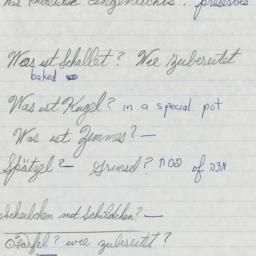 Was Eingemachtes? preserves
Was ist Schallet? Wie zubereitet
baked
Was ist Kugel? in a special pot
Was ist Zimmes? —
Spätzel? — Grimsel? of
Scheibchen mit Schildchen? —
wie zubereitet?